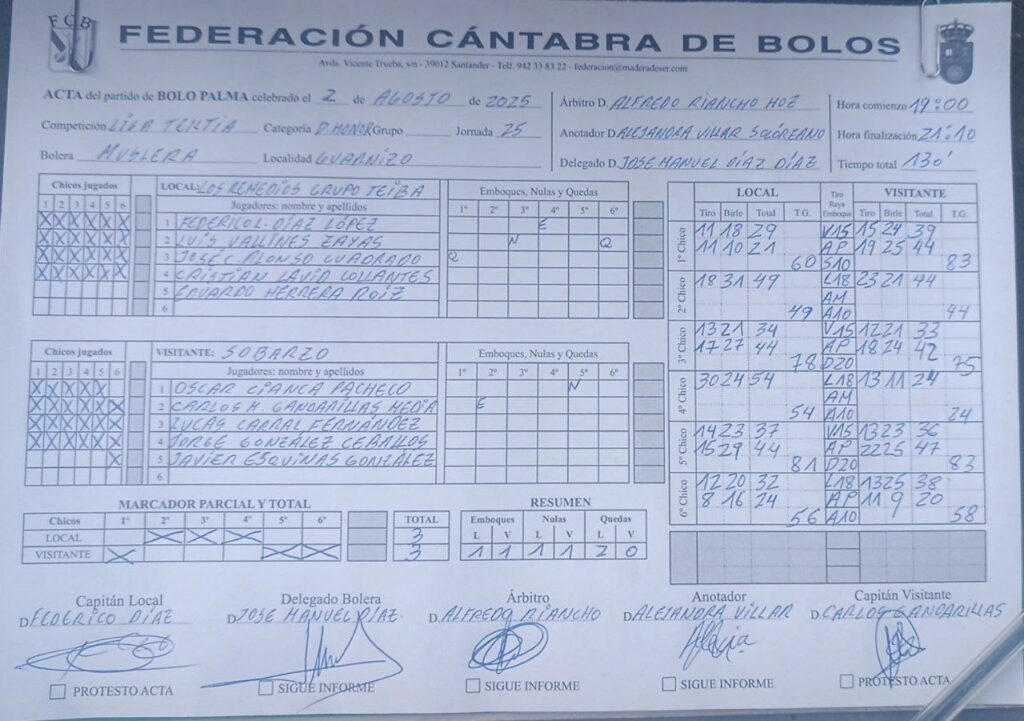 FCB
FEDERACIÓN CÁNTABRA DE BOLOS
Avda. Vicente Trueba, s/n - 39012 Santander - Telf. 942 33 83 22 - federacion@maderadeser.com
ACTA del partido de BOLO PALMA celebrado el 2 de AGOSTO de 2025
Competición LIGA TERTIA Categoría D.HONOR Grupo Jornada 25
Bolera MUSLERA Localidad GUARNIZO
Árbitro D. ALFREDO RIANCHO HOZ
Anotador D. ALEJANDRA VILLAR SOLÓRZANO
Delegado D. JOSE MANUEL DÍAZ DÍAZ
Hora comienzo 19:00
Hora finalización 21:10
Tiempo total 130'
Chicos jugados
1 2 3 4 5 6
X X X X X X
X X X X X X
X X X X X X
X X X X X X
LOCAL: LOS REMEDIOS GRUPO TEIBA
Jugadores: nombre y apellidos
1 FEDERICO L. DÍAZ LÓPEZ
2 LUIS VALLINES ZAYAS
3 JOSÉ C ALONSO CUADRADO
4 CRISTIAN LAVID COLLANTES
5 EDUARDO HERRERA ROIZ
6
Emboques, Nulas y Quedas
1º 2º 3º 4º 5º 6º
E
N Q
Q
Chicos jugados
1 2 3 4 5 6
X X X X X
X X X X X X
X X X X X X
X X X X X X
X
VISITANTE: SOBARZO
Jugadores: nombre y apellidos
1 OSCAR CIANCA PACHECO
2 CARLOS H. GANDARILLAS MEDIA
3 LUCAS CARRAL FERNÁNDEZ
4 JORGE GONZÁLEZ CEBALLOS
5 JAVIER ESQUINAS GONZÁLEZ
6
Emboques, Nulas y Quedas
1º 2º 3º 4º 5º 6º
N
E
MARCADOR PARCIAL Y TOTAL
Chicos 1º 2º 3º 4º 5º 6º TOTAL
LOCAL X X X 3
VISITANTE X X X 3
RESUMEN
Emboques Nulas Quedas
L V L V L V
1 1 1 1 2 0
LOCAL Tiro Raya Emboque VISITANTE
Tiro Birle Total T.G. Tiro Birle Total T.G.
1º Chico
11 18 29 V15 15 24 39
11 10 21 AP 19 25 44
60 S10 83
2º Chico
18 31 49 L18 23 21 44
AM
49 A10 44
3º Chico
13 21 34 V15 12 21 33
17 27 44 AP 18 24 42
78 D20 75
4º Chico
30 24 54 L18 13 11 24
AM
54 A10 24
5º Chico
14 23 37 V15 13 23 36
15 29 44 AP 22 25 47
81 D20 83
6º Chico
12 20 32 L18 13 25 38
8 16 24 AP 11 9 20
56 A10 58
Capitán Local
D. FEDERICO DÍAZ
PROTESTO ACTA
Delegado Bolera
D. JOSE MANUEL DÍAZ
SIGUE INFORME
Árbitro
D. ALFREDO RIANCHO
SIGUE INFORME
Anotador
D. ALEJANDRA VILLAR
SIGUE INFORME
Capitán Visitante
D. CARLOS GANDARILLAS
PROTESTO ACTA